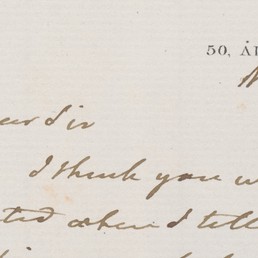 50, A
ear Sir
I think you w
ted when I tell